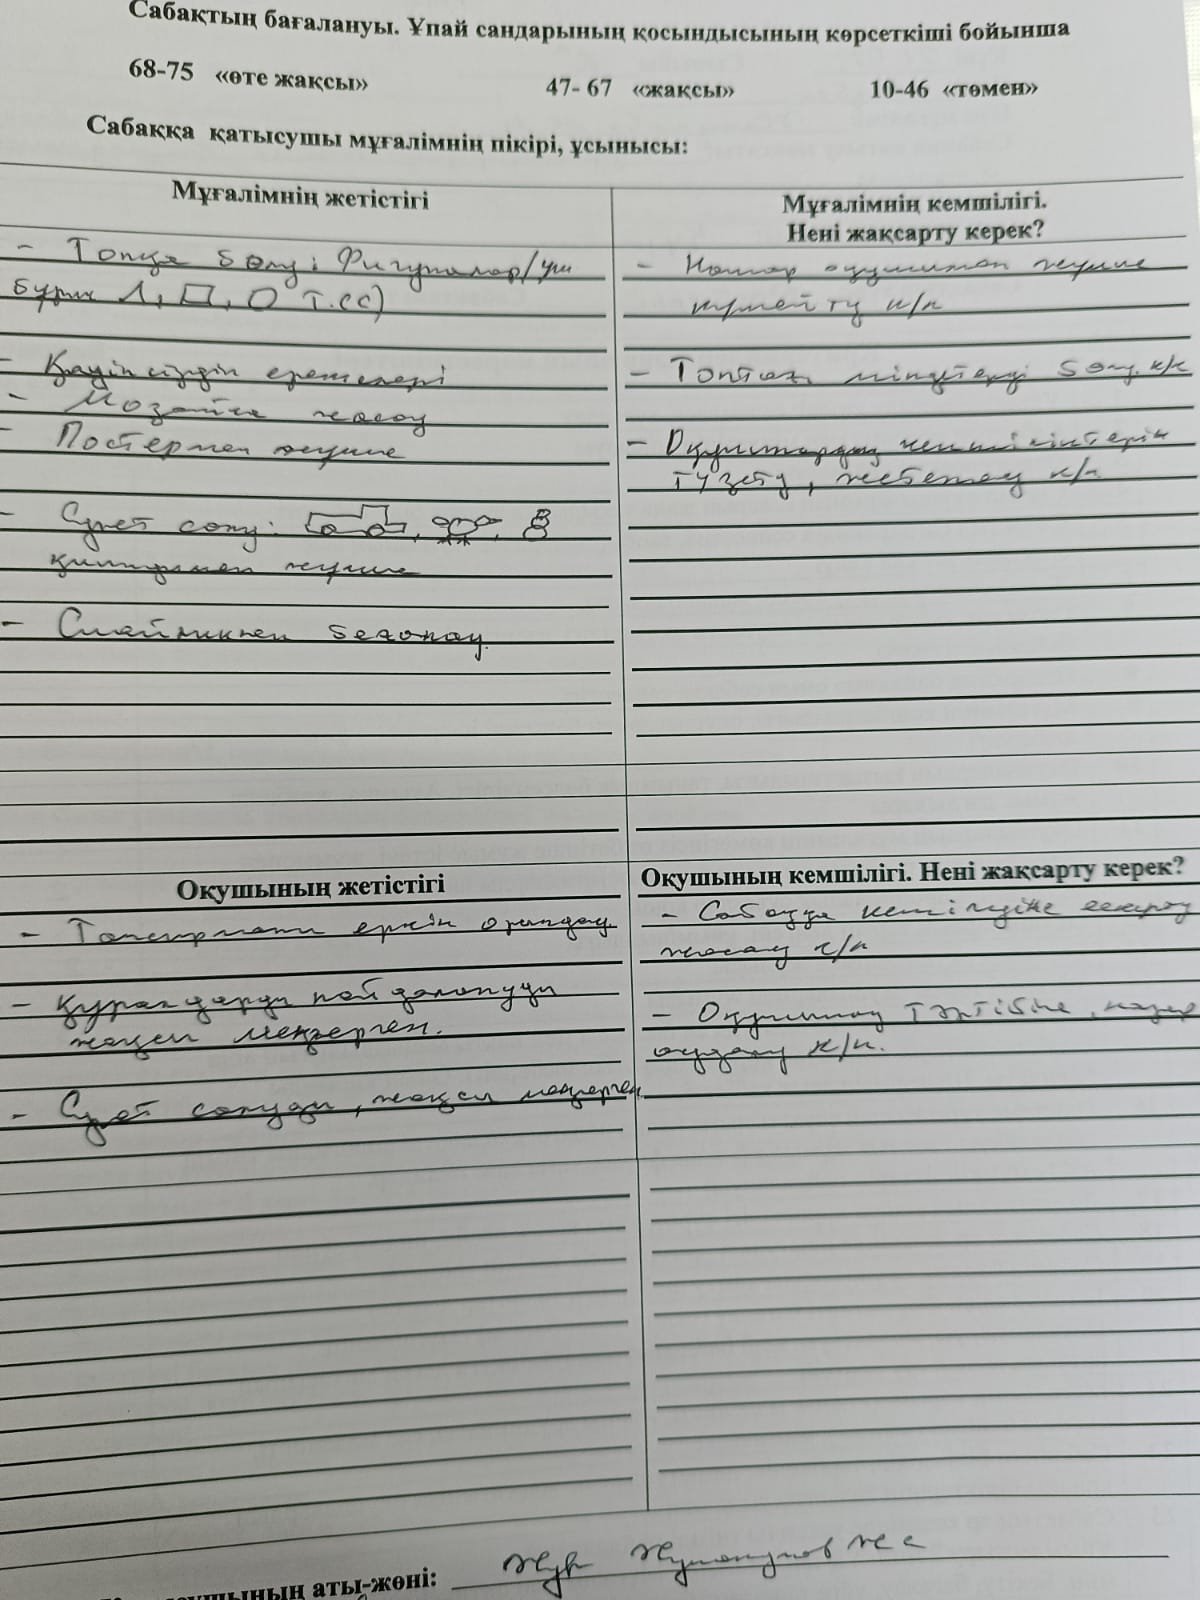 Сабақтың бағалануы. Ұпай сандарының қосындысының көрсеткіші бойынша
68-75 «өте жақсы» 47- 67 «жақсы» 10-46 «төмен»
Сабаққа қатысушы мұғалімнің пікірі, ұсынысы:
Мұғалімнің жетістігі
- Топқа бөлу: Фигуралар/үш
бұрыш
- Қауіпсіздік ережелері
- Мозайка жасау
- Постермен жұмыс
- Сурет салу:
қиындымен жұмыс
- Смайликпен бағалау.
Мұғалімнің кемшілігі.
Нені жақсарту керек?
- Нашар оқушымен жұмыс
күшейту к/к
- Топтағы міндетерді бөлу. к/к
- Оқушылардың кемшіліктерін
түзету, к/к
Оқушының жетістігі
- Тапсырманы еркін орындау.
- Құралдарды пайдалануды
жақсы меңгерген.
- Сурет салуды, жақсы меңгерген
Оқушының кемшілігі. Нені жақсарту керек?
- Сабаққа кешігуіне ескерту
жасау к/к
- Оқушының тәртібіне, назар
аудару к/к.
аты-жөні: